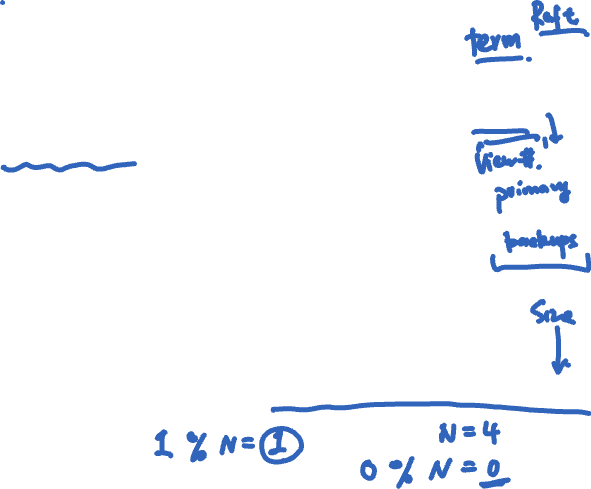 Raft
term.
View#.
primary
backups
Size
N=4
1 % N = 1
0 % N = 0